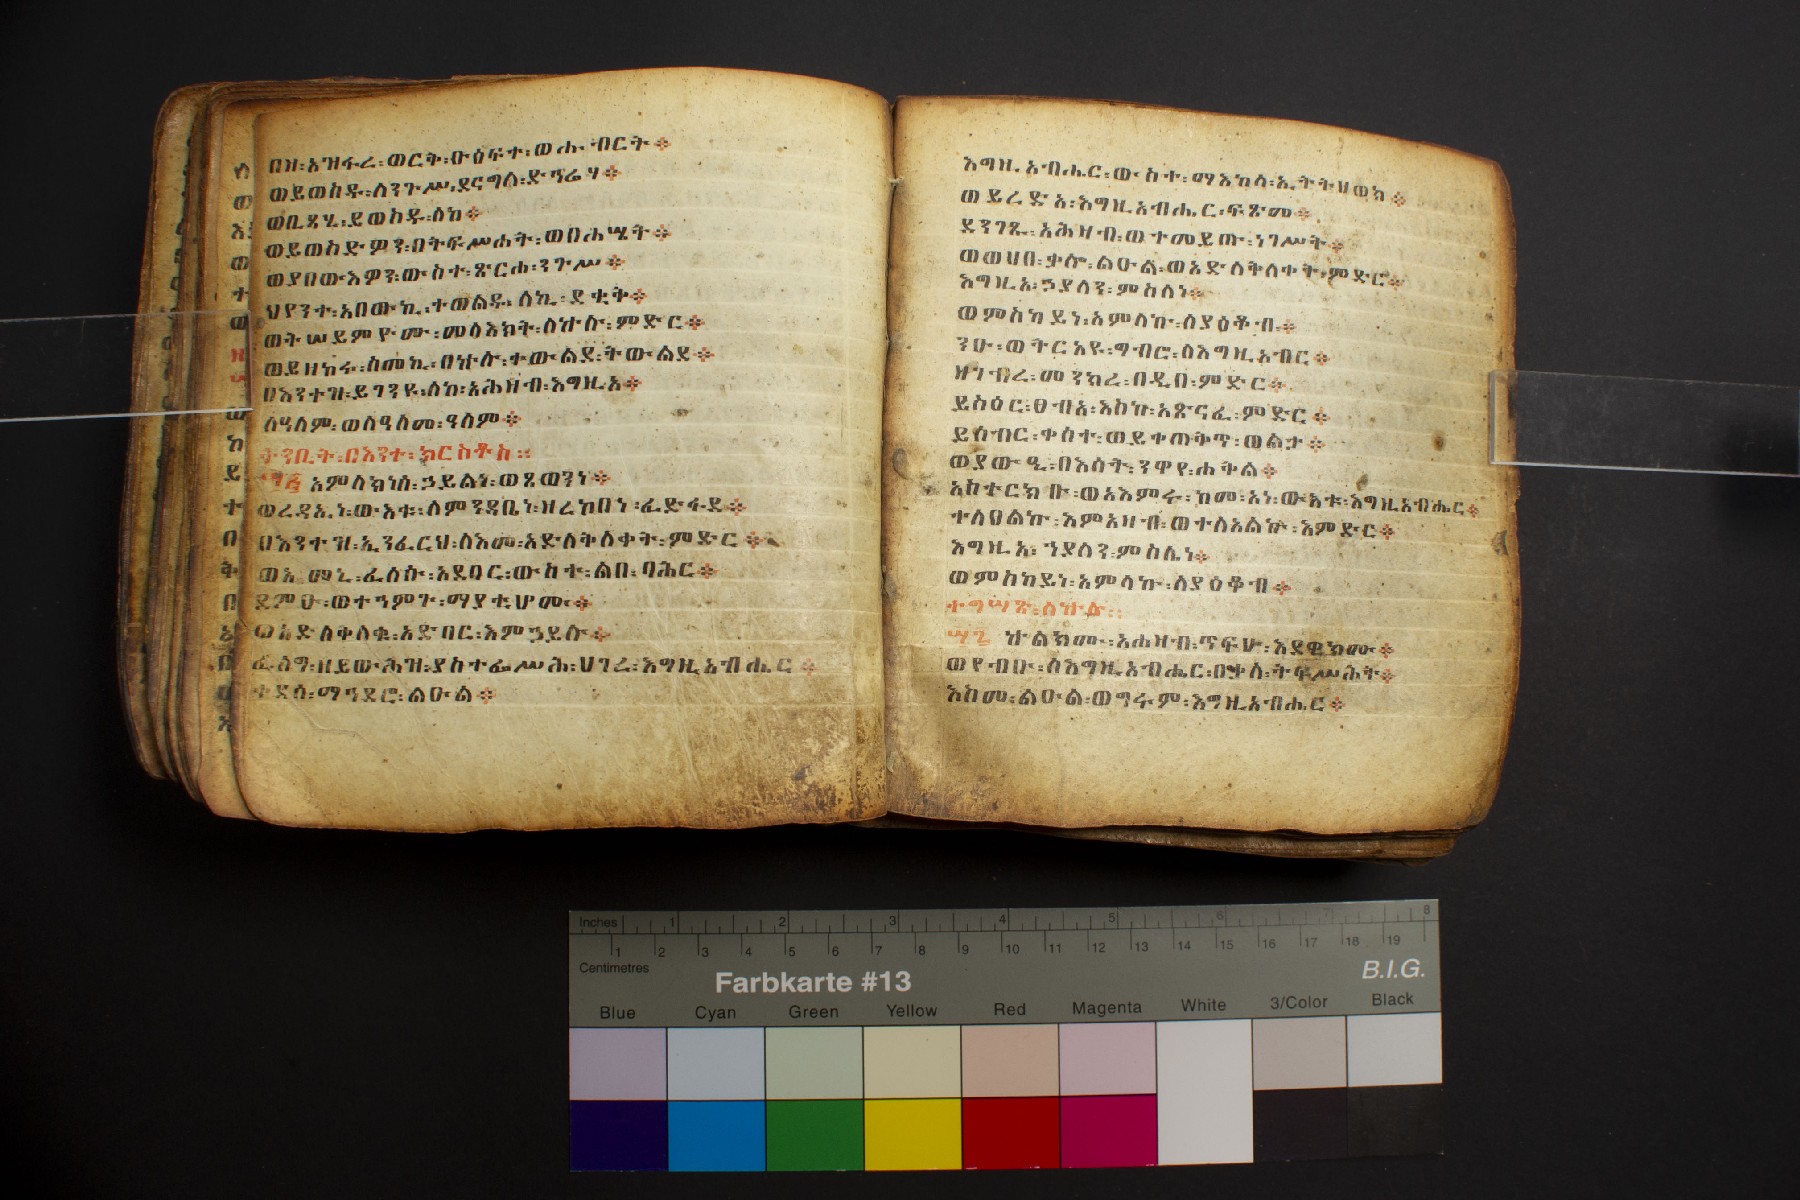 በዘ፡አዝፋረ፡ወርቅ፡ዑፅፍተ፡ወሑብርት፨
ወይወስዱ፡ለንጉሥ፡ደናግለ፡ድኅሬሃ፨
ወቢጻሂ፡ይወስዱ፡ለከ፨
ወይወስድዎን፡በትፍሥሐት፡ወበሐሤት፨
ወያበውእዎን፡ውስተ፡ጽርሐ፡ንጉሥ፨
ህየንተ፡አበውኪ፡ተወልዱ፡ለኪ፡ደቂቅ፨
ወትሠይምዮሙ፡መልእክት፡ለኵሉ፡ምድር፨
ወይዘከሩ፡ስመኪ፡በኵሉ፡ተውልደ፡ትውልደ፨
በእንተዝ፡ይገንዩ፡ለከ፡አሕዛብ፡እግዚአ፨
ለዓለም፡ወለዓለመ፡ዓለም፨
ትንቢት፡በእንተ፡ክርስቶስ፡፡
፵፭ አምላክነሰ፡ኃይልነ፡ወጸወንነ፨
ወረዳኢነ፡ውእቱ፡ለምንዳቤነ፡ዘረከበነ፡ፈድፋደ፨
በእንተዝ፡ኢንፈርህ፡ለእመ፡አድለቅለቀት፡ምድር፨
ወእመኒ፡ፈለሱ፡አደባር፡ውስተ፡ልበ፡ባሕር፨
ደምፁ፡ወተኀምጉ፡ማያቲሆሙ፨
ወአድለቅለቁ፡አድባር፡እምኃይሉ፨
ፈለግ፡ዘይውሕዝ፡ያስተፌሥሕ፡ሀገረ፡እግዚአብሔር፨
ቀደሰ፡ማኅደሮ፡ልዑል፨
እግዚአብሔር፡ውስተ፡ማእከላ፡ኢትትሀወክ፨
ወይረድአ፡እግዚአብሔር፡ፍጽመ፨
ደንገፁ፡አሕዛብ፡ወተመይጡ፡ነገሥት፨
ወወሀበ፡ቃሎ፡ልዑል፡ወአድለቅለቀት፡ምድር፨
እግዚአ፡ኃያላን፡ምስሌነ፨
ወምስካይነ፡አምላኩ፡ለያዕቆብ፨
ንዑ፡ወትርአዩ፡ግብሮ፡ለእግዚአብር፨
ዘገብረ፡መንክረ፡በዲበ፡ምድር፨
ይስዕር፡ፀብአ፡እስከ፡አጽናፈ፡ምድር፨
ይሰብር፡ቀስተ፡ወይቀጠቅጥ፡ወልታ፨
ወያውዒ፡በእሳት፡ንዋየ፡ሐቅል፨
አስተርክቡ፡ወአእምሩ፡ከመ፡አነ፡ውእቱ፡እግዚአብሔር፨
ተለዐልኩ፡እምአዛብ፡ወተለአልኩ፡እምድር፨
እግዚአ፡ኀያላን፡ምስሌነ፨
ወምስካይነ፡አምላኩ፡ለያዕቆብ፨
ተግሣጽ፡ለኵሉ፡፡
፵፮ ኵልክሙ፡አሐዛብ፡ጥፍሁ፡እደዊክሙ፨
ወየብቡ፡ለእግዚአብሔር፡በቃለ፡ትፍሥሕት፨
እስመ፡ልዑል፡ወግሩም፡እግዚአብሔር፨
Inches 1 2 3 4 5 6 7 8
1 2 3 4 5 6 7 8 9 10 11 12 13 14 15 16 17 18 19
Centimetres
Farbkarte #13 B.I.G.
Blue Cyan Green Yellow Red Magenta White 3/Color Black